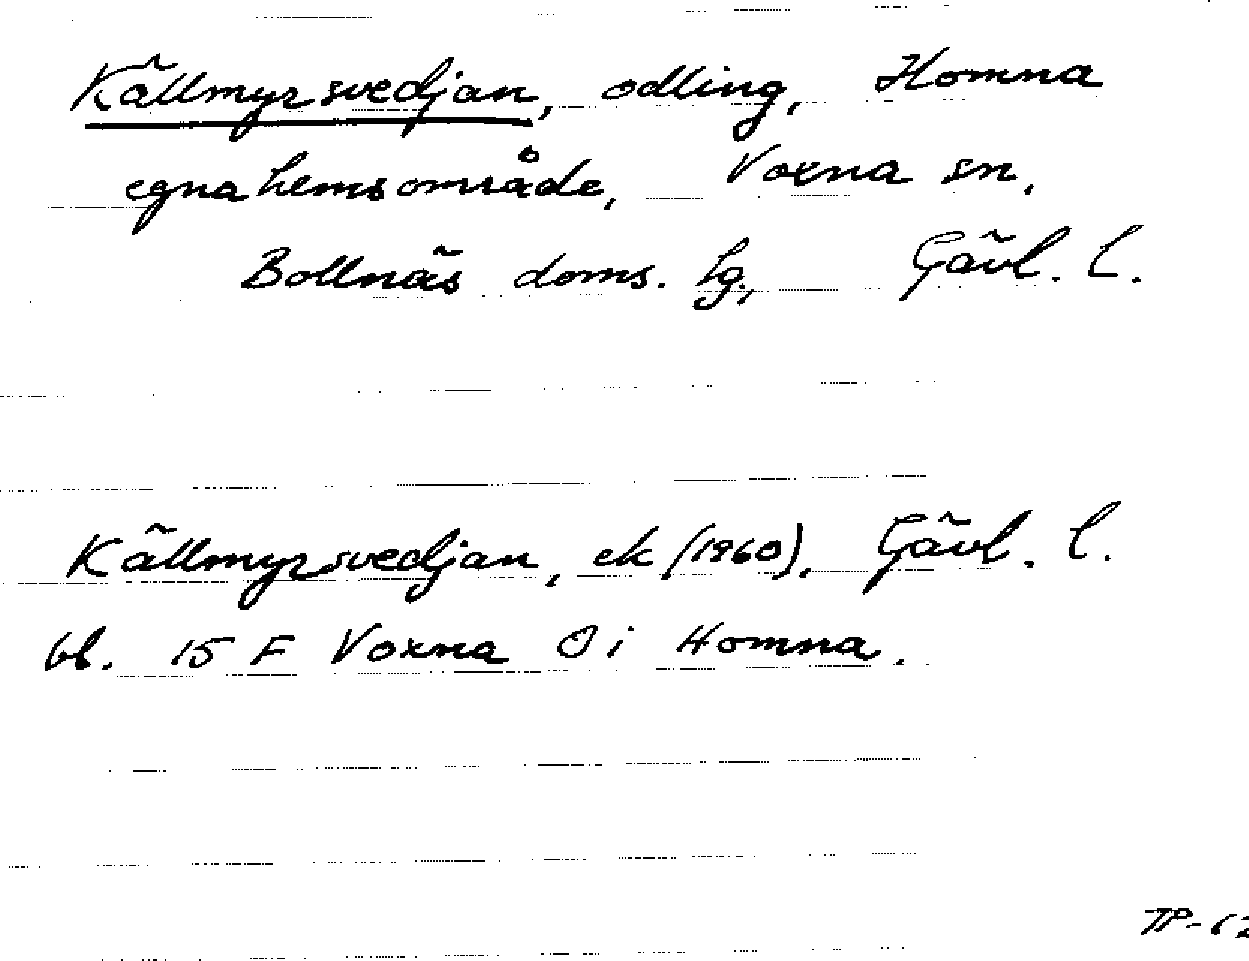 Källmyrsvedjan, odling, Homna
egnahemsområde, Voxna sn,
Bollnäs doms. lg, Gävl. l.
Källmyrsvedjan, ek (1960), Gävl. l.
bl. 15 F Voxna Ö i Homna.
TP-62